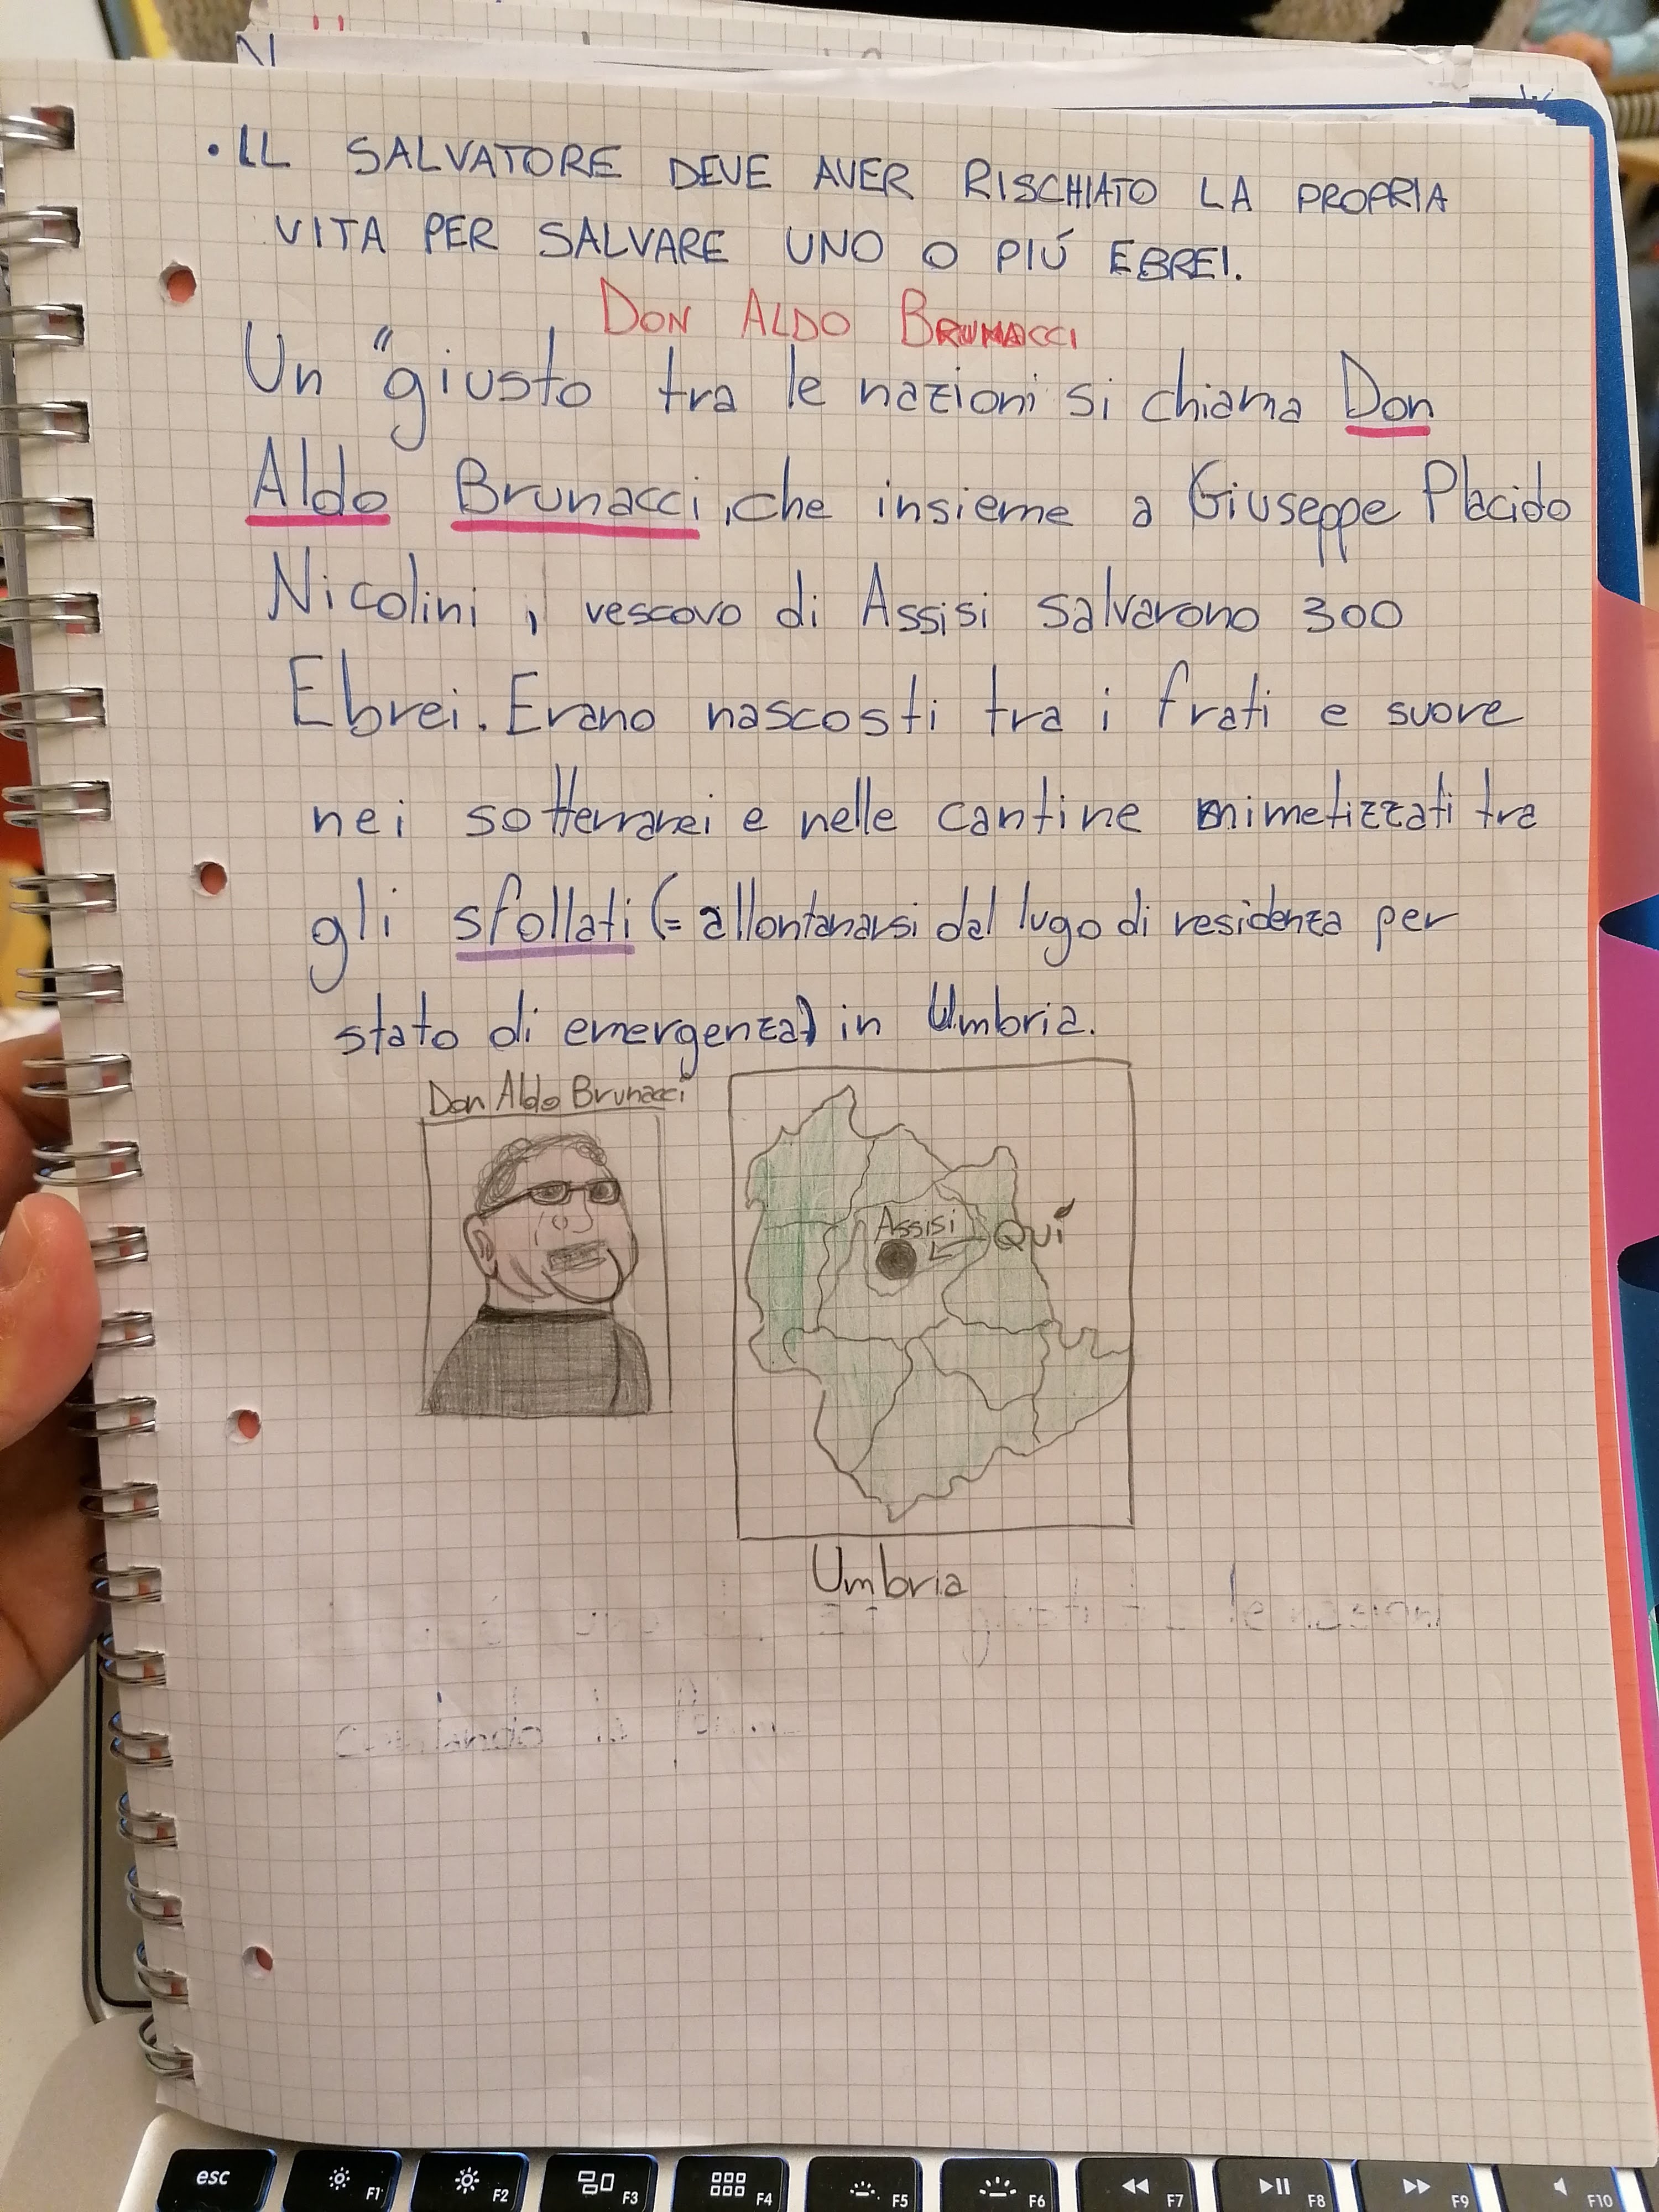 • IL SALVATORE DEVE AVER RISCHIATO LA PROPRIA
VITA PER SALVARE UNO O PIÚ EBREI.
DON ALDO BRUNACCI
Un "giusto tra le nazioni si chiama Don
Aldo Brunacci, che insieme a Giuseppe Placido
Nicolini, vescovo di Assisi salvarono 300
Ebrei. Erano nascosti tra i frati e suore
nei sotterranei e nelle cantine mimetizzati tra
gli sfollati (= allontanarsi dal lugo di residenza per
stato di emergenza) in Umbria.
Don Aldo Brunacci
Assisi
QUÍ
Umbria
le nazioni
esc
F1
F2
F3
F4
F5
F6
F7
F8
F9
F10